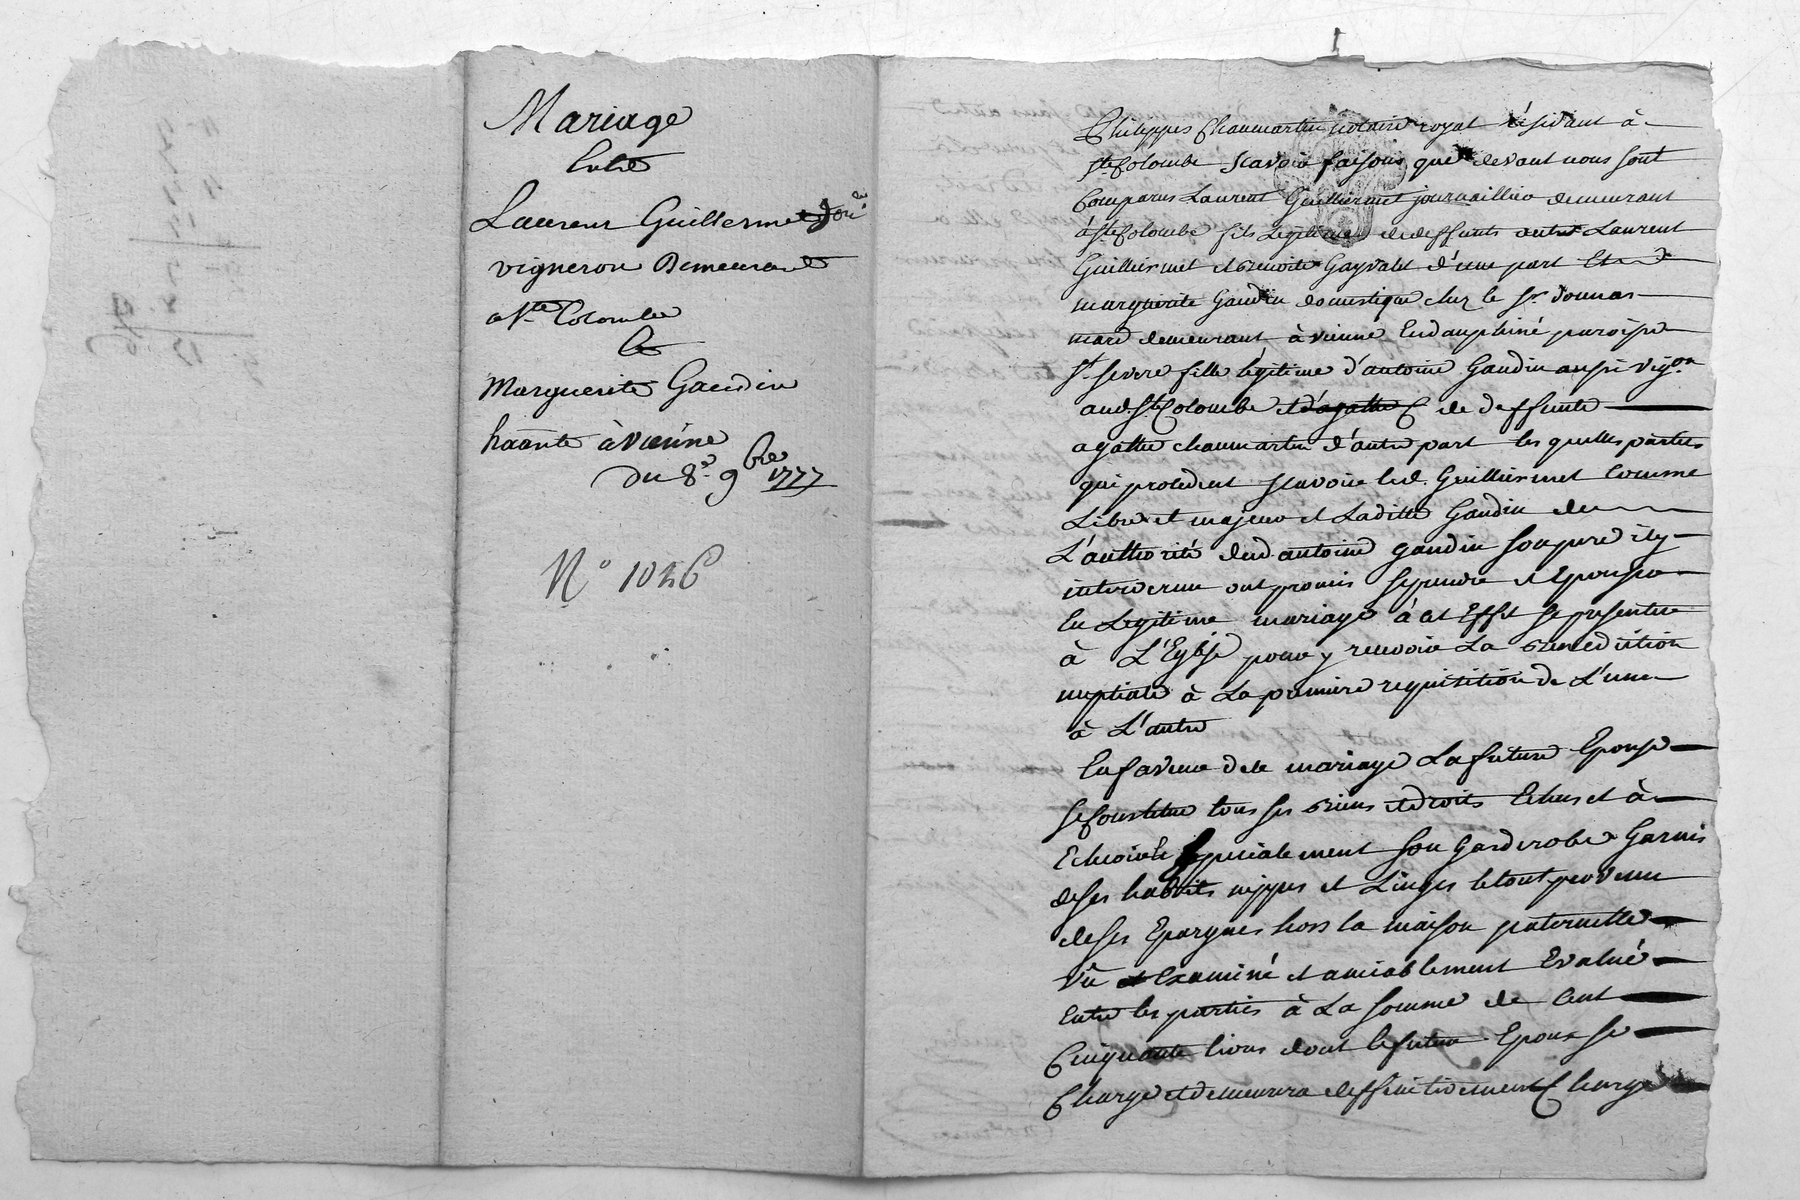 Mariage
Entre
Laurent Guillermet
vigneron Demeurant
a Ste Colombe
Et
Marguerite Gaudin
haante à vienne
du 8e 9bre 1777
N° 1046
Philippes Chaumartin notaire royal résidant à
ste Colombe scavoir faisons que devant nous sont
Comparus Laurent Guilliermet journaillier demeurant
à ste Colombe fils Légitime de deffunts autre Laurent
Guilliermet et Benoite Gayvalet d'une part Et
marguerite Gaudin domestique chez le sr. Donnas
mard demeurant à vienne En dauphiné paroisse
st. severe fille légitime d'antoine Gaudin aussi vigon
aud. ste Colombe et d'agathe de deffunte
agathe chaumartin d'autre part les quelles parties
qui procedent scavoir led. Guilliermet Comme
Libre et majeur et Laditte Gaudin de
L'authorité dud antoine gaudin son pere icy
intervenu ont promis se prendre et Epouser
En Legitime mariage à cet Effet se presenter
à L'Eglise pour y recevoir La Benediction
nuptiale à La premiere requisition de L'une
à L'autre
En faveur de ce mariage La future Epouse
se Constitue tous ses Biens et droits Echus et à
Echeoir specialement son Garderobe Garnis
de ses habits nippes et Linges le tout provenu
de ses Epargnes hors la maison paternelle
Vû et Examiné et amiablement Evalué
Entre les parties à La somme de Cent
Cinquante livres dont le futur Epoux se
Charge et demeurera deffinitivement Chargé